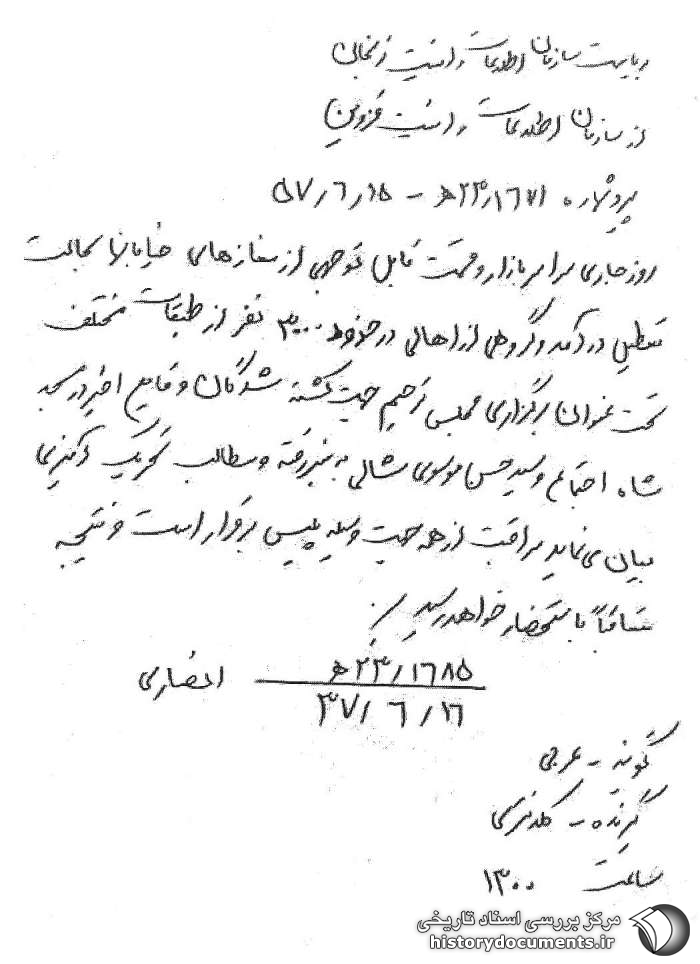 بریاست سازمان اطلاعات و امنیت زنجان
از سازمان اطلاعات و امنیت قزوین
پیرو شماره ۲۳/۱۶۷۱ﻫ - ۵۷/۶/۱۵
روز جاری سراسر بازار و قسمت قابل توجهی از مغازه‌های خیابانها بحالت
تعطیل درآمد و گروهی از اهالی در حدود ۳۰۰۰ نفر از طبقات مختلف
تحت عنوان برگزاری مجلس ترحیم جهت کشته شدگان وقایع اخیر در مسجد
شاه اجتماع و سید حسن موسوی شالی به منبر رفته و مطالب تحریک آمیزی
بیان می‌نماید مراقبت از همه جهت وسیله پلیس برقرار است و نتیجه
متعاقباً باستحضار خواهد رسید
۲۳/۱۶۸۵ﻫ انصاری
۳۷/۶/۱۶
گونه - عرجی
گیرنده -
ساعت ۱۳۰۰
مرکز بررسی اسناد تاریخی
historydocuments.ir